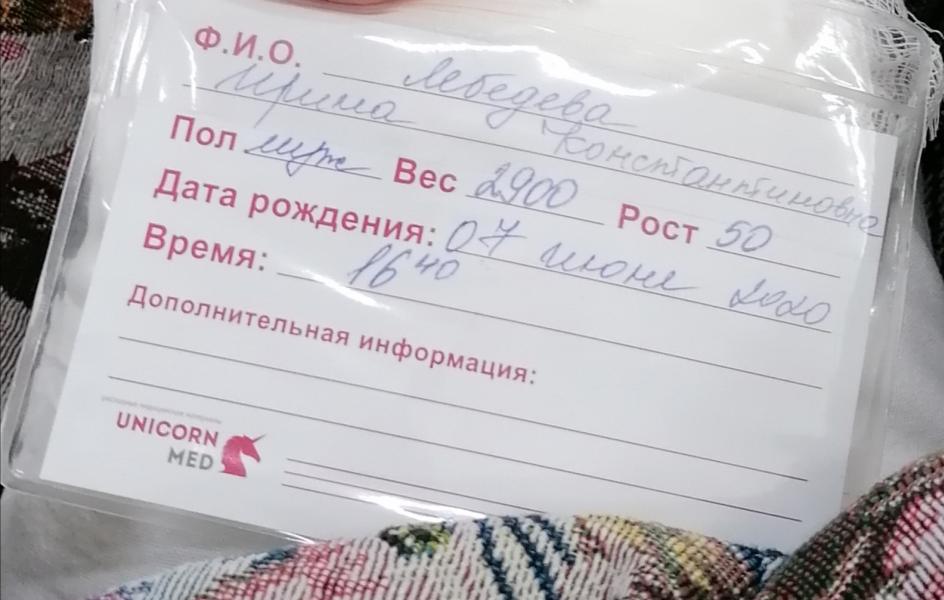 Ф.И.О. Лебедева
Ирина Константиновна
Пол муж Вес 2900 Рост 50
Дата рождения: 07 июня 2020
Время: 16 40
Дополнительная информация:
расходные медицинские материалы
UNICORN
MED